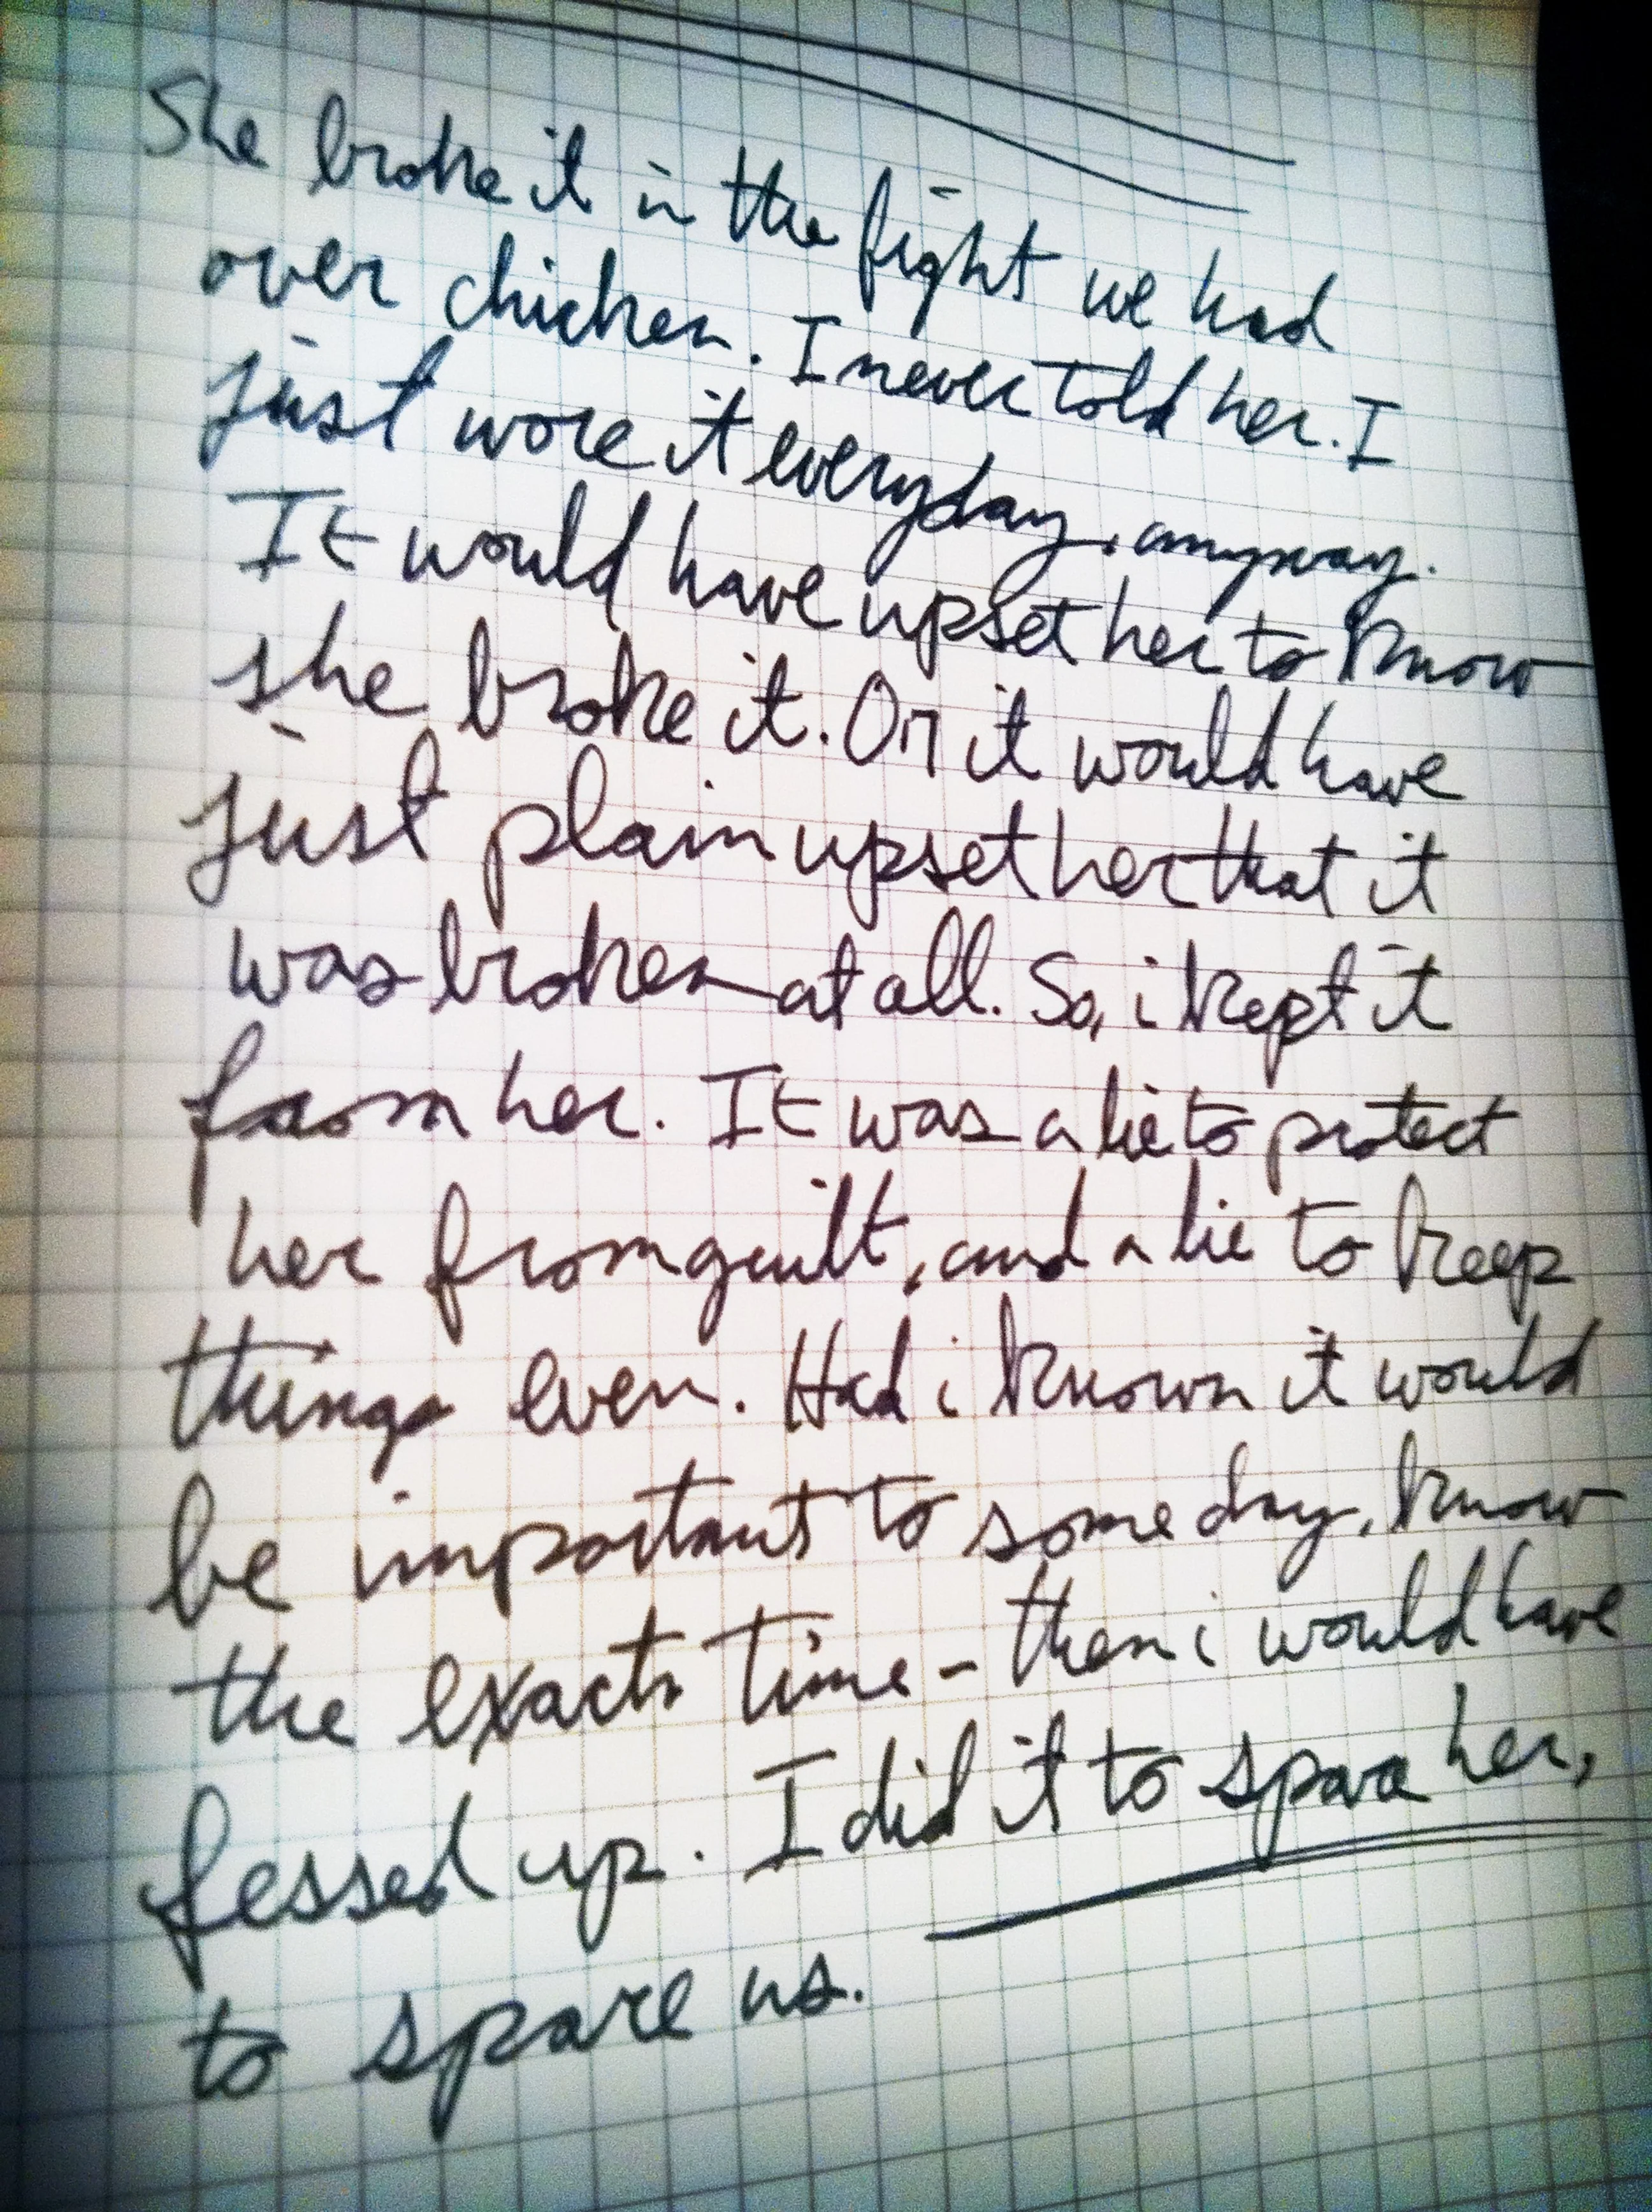 She broke it in the fight we had
over chicken. I never told her. I
just wore it everyday, anyway.
It would have upset her to know
she broke it. Or it would have
just plain upset her that it
was broken at all. So, i kept it
from her. It was a lie to protect
her from guilt, and a lie to keep
things even. Had i known it would
be important to someday, know
the exact time - then i would have
fessed up. I did it to spare her,
to spare us.